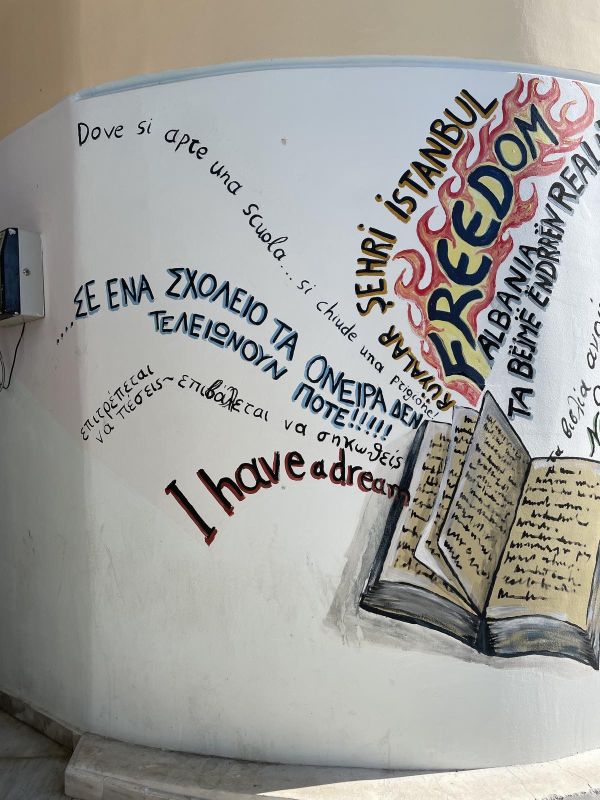 Dove si apre una scuola... si chiude una prigione!
.....ΣΕ ΕΝΑ ΣΧΟΛΕΙΟ ΤΑ ΟΝΕΙΡΑ ΔΕΝ
ΤΕΛΕΙΩΝΟΥΝ ΠΟΤΕ!!!!!
επιτρέπεται
να πέσεις~επιβάλεται να σηκωθείς
I have a dream
RÜYALAR ŞEHRİ İSTANBUL
FREEDOM
ALBANIA
TA BËJMË ËNDRRËN
βιβλία